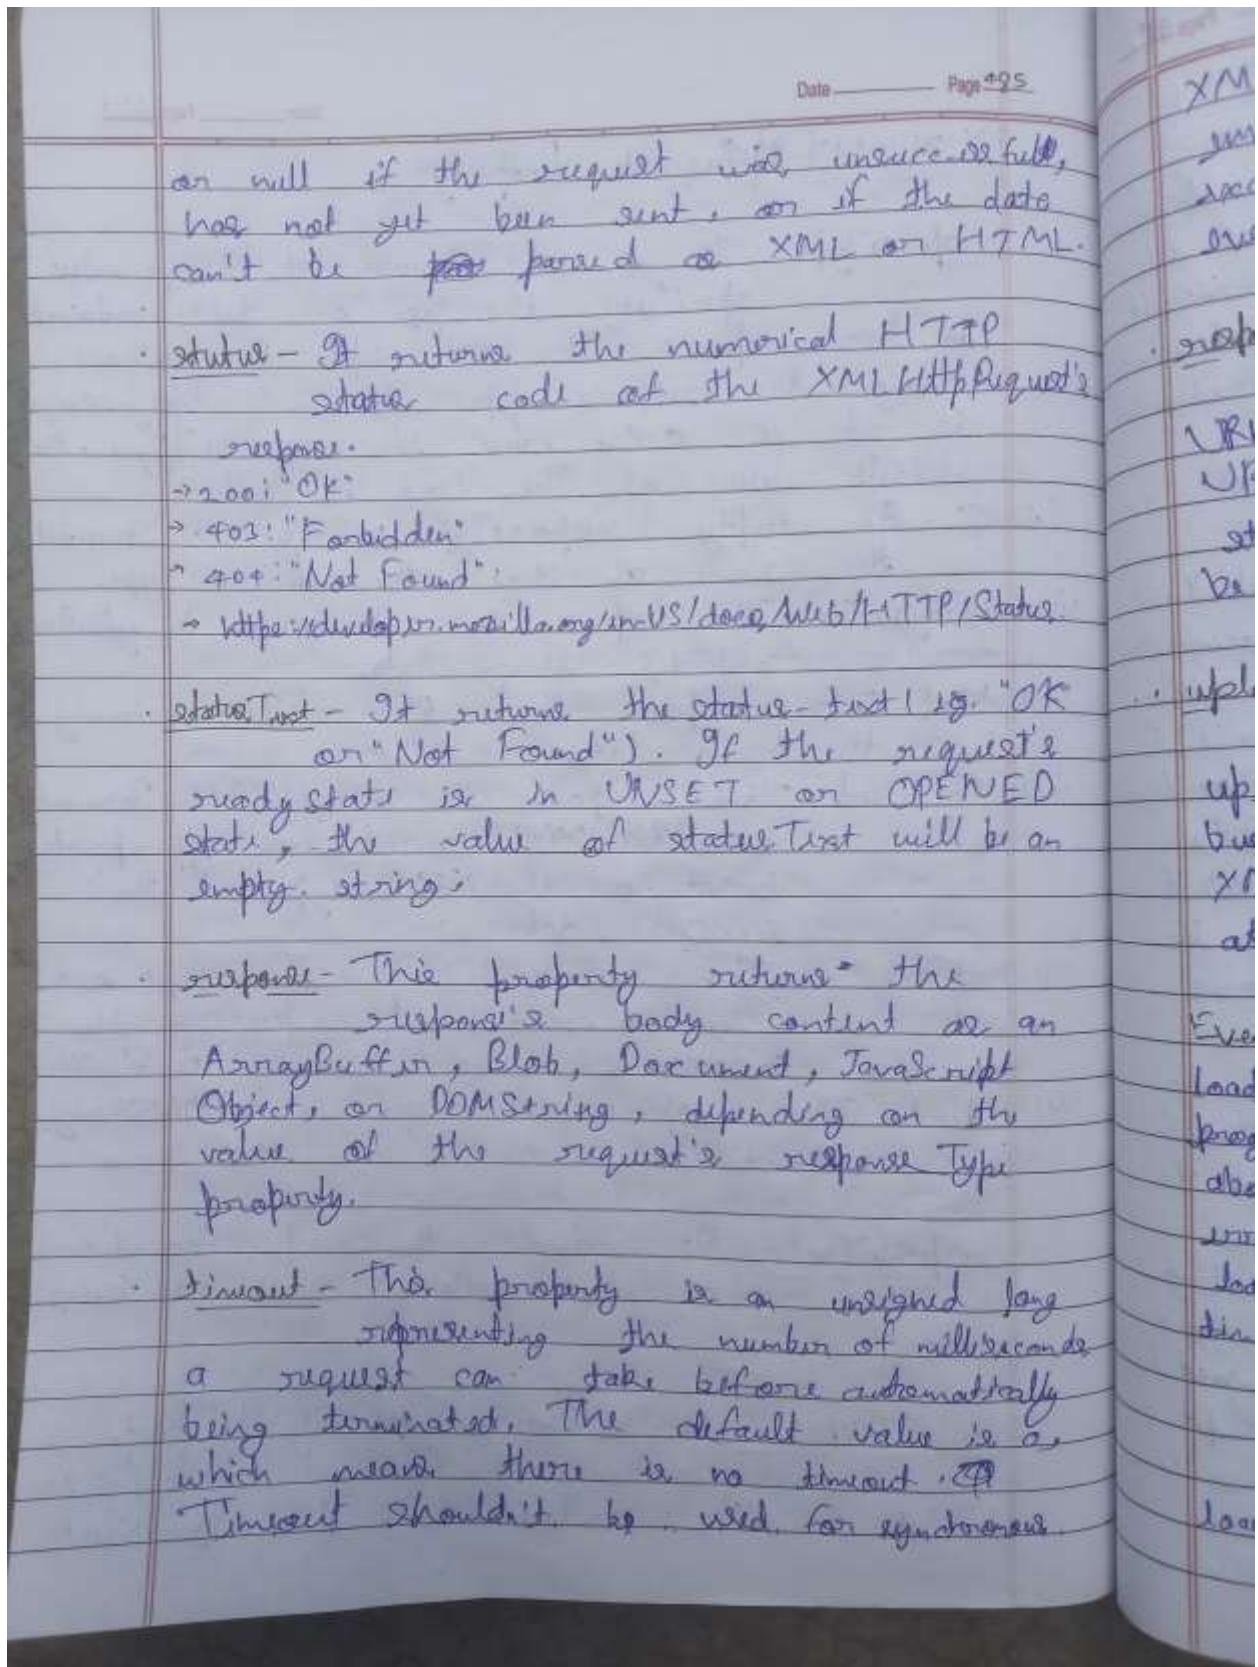 Date Page 485
or null if the request was unsuccessful,
has not yet been sent, or if the data
can't be parsed as XML or HTML.
· status - It returns the numerical HTTP
status code of the XMLHttpRequest's
response.
→ 200: "OK"
→ 403: "Forbidden"
→ 404: "Not Found"
→ https://developer.mozilla.org/en-US/docs/Web/HTTP/Status
· statusText - It returns the status-text (eg. "OK"
or "Not Found"). If the request's
readyState is in UNSET or OPENED
state, the value of statusText will be an
empty string.
· response - This property returns the
response's body content as an
ArrayBuffer, Blob, Document, JavaScript
Object, or DOMString, depending on the
value of the request's response Type
property.
· timeout - This property is an unsigned long
representing the number of milliseconds
a request can take before automatically
being terminated. The default value is 0,
which means there is no timeout.
Timeout shouldn't be used for synchronous
XM
· resp
UR
be
· upl
up
XM
Eve
load
prog
abo
err
loa
tim
loa